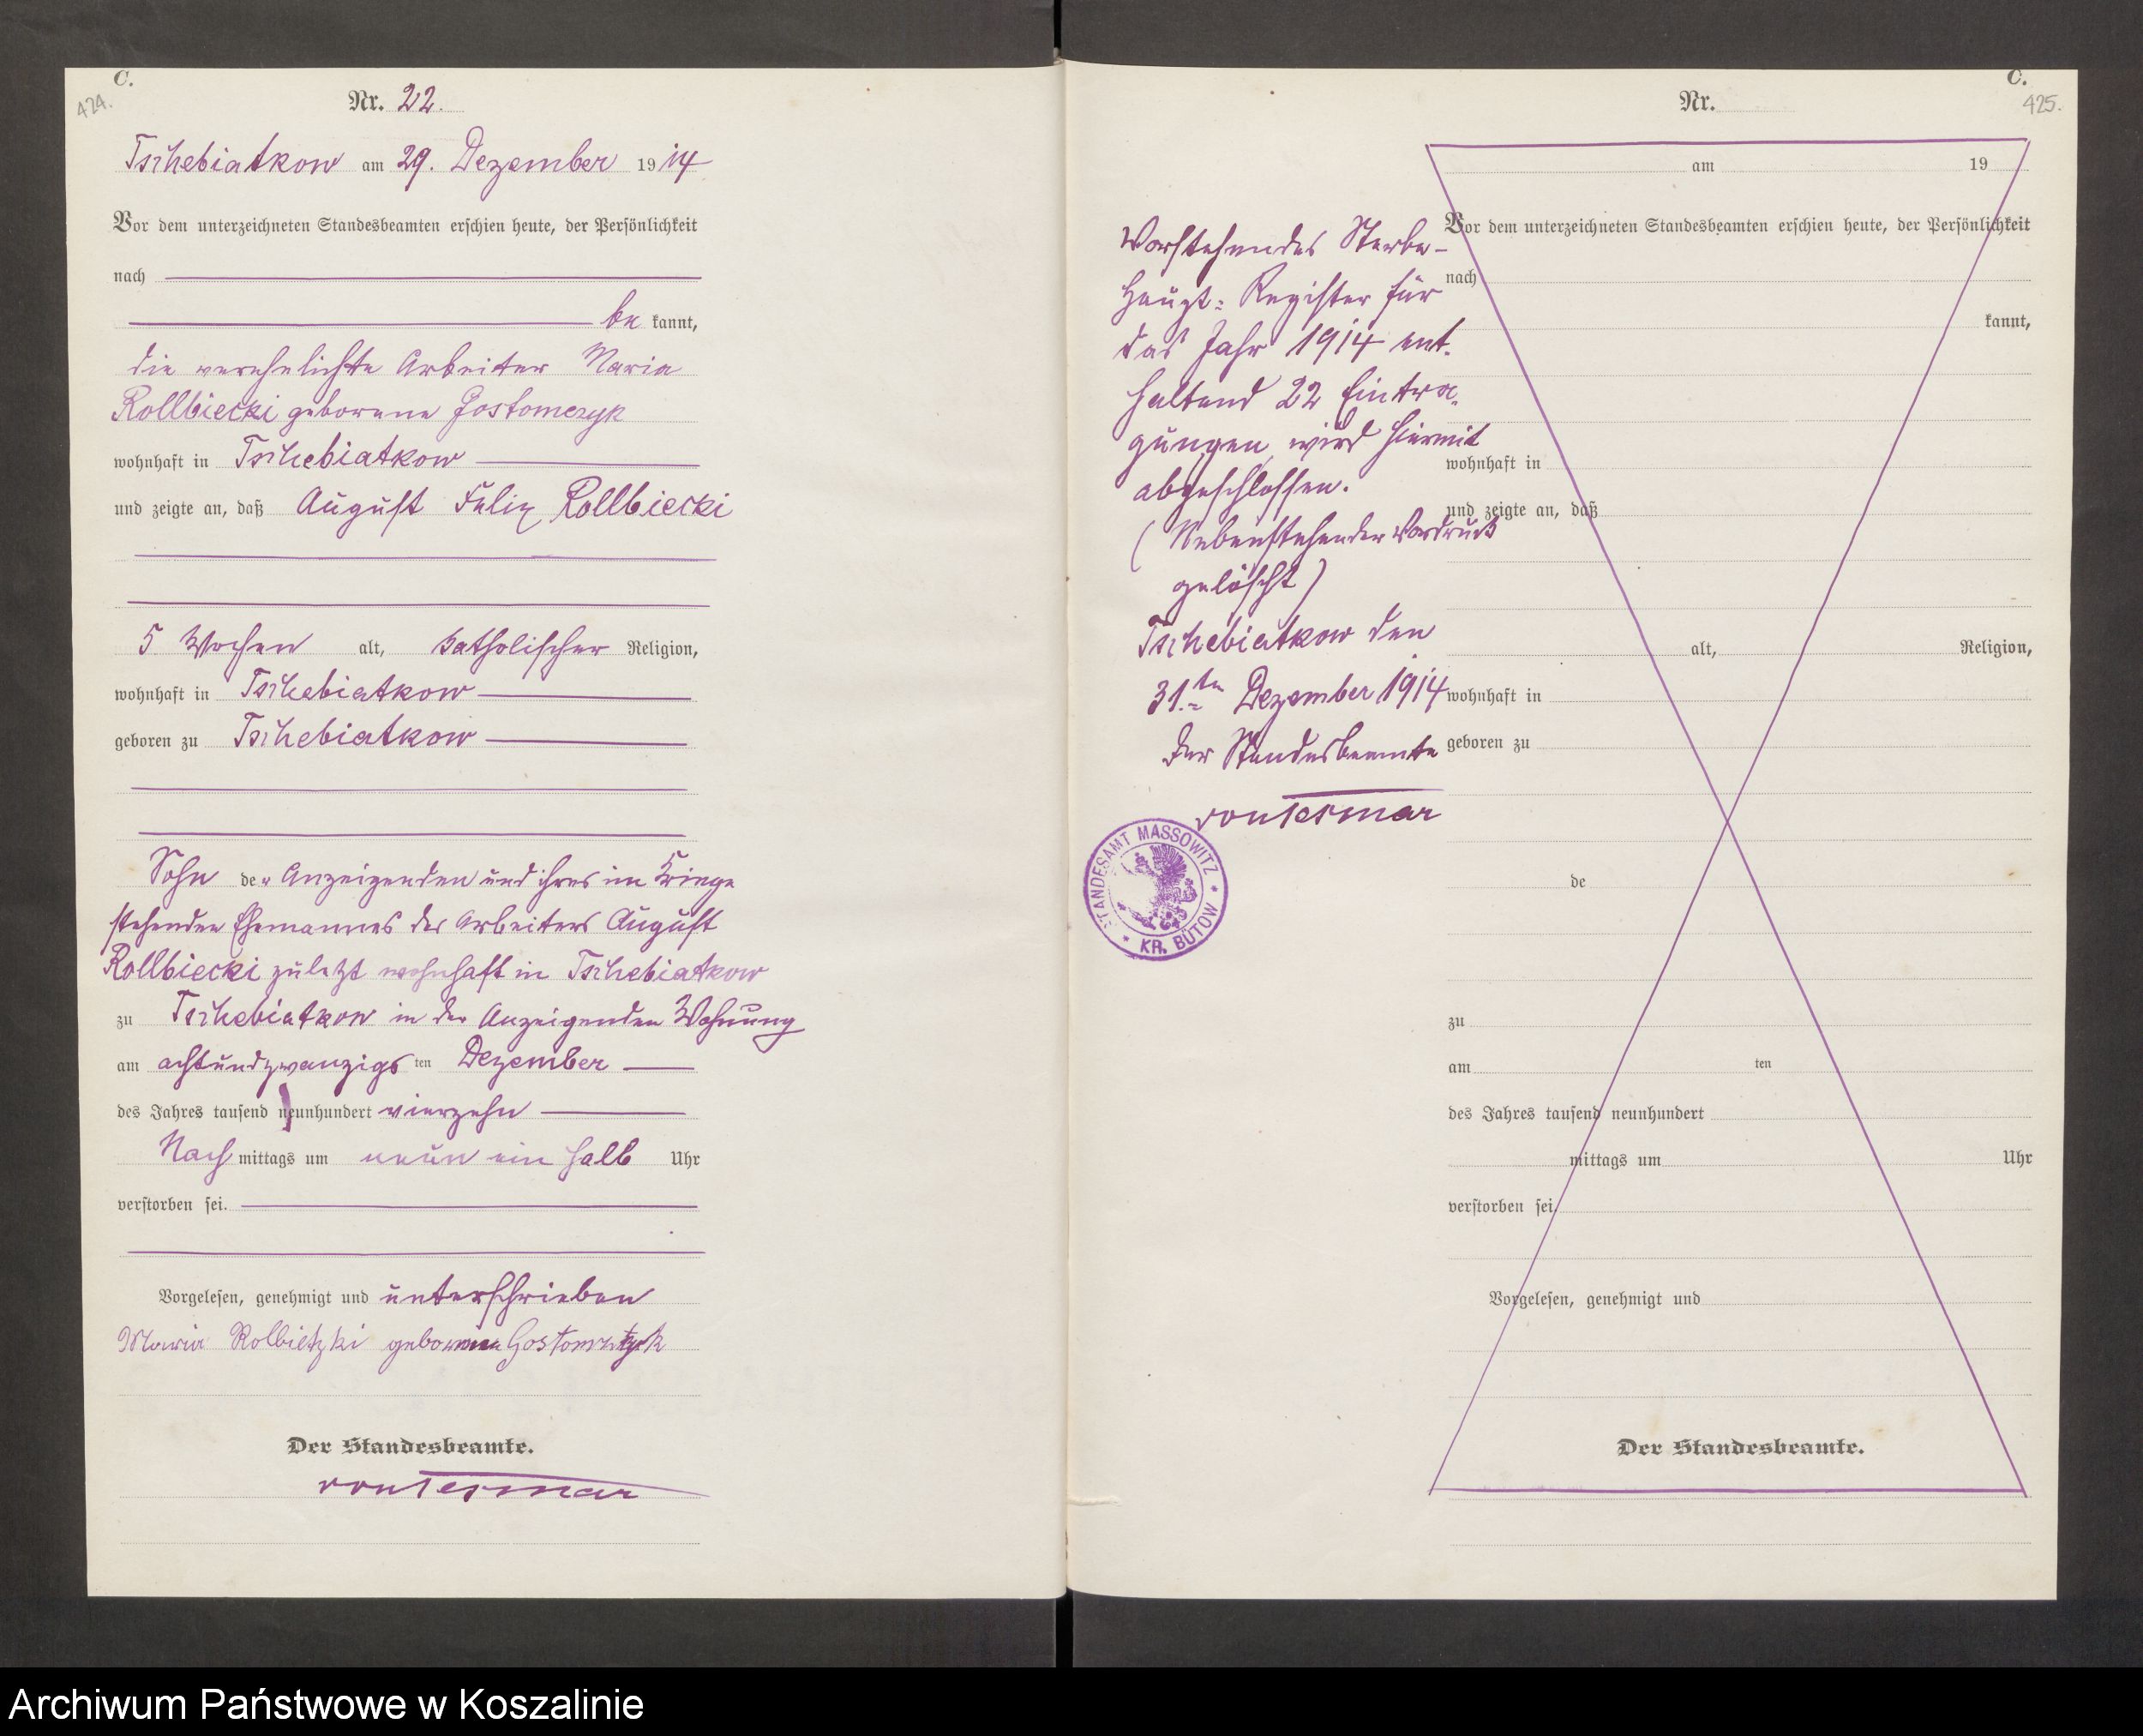 C.
424.
Nr. 22.
Tschebiatkow am 29. Dezember 1914
Vor dem unterzeichneten Standesbeamten erschien heute, der Persönlichkeit
nach
be kannt,
die verehelichte Arbeiter Maria
Rollbiecki geborene Gostomczyk
wohnhaft in Tschebiatkow
und zeigte an, daß August Felix Rollbiecki
5 Wochen alt, katholischer Religion,
wohnhaft in Tschebiatkow
geboren zu Tschebiatkow
Sohn der Anzeigenden und ihres im Kriege
stehenden Ehemannes des Arbeiters August
Rollbiecki zuletzt wohnhaft in Tschebiatkow
zu Tschebiatkow in der Anzeigenden Wohnung
am achtundzwanzigs ten Dezember
des Jahres tausend neunhundert vierzehn
Nach mittags um neun ein halb Uhr
verstorben sei.
Vorgelesen, genehmigt und unterschrieben
Maria Rolbietzki geborene
Der Standesbeamte.
von Tesmar
C.
425.
Nr.
am 19
Vor dem unterzeichneten Standesbeamten erschien heute, der Persönlichkeit
nach
kannt,
wohnhaft in
und zeigte an, daß
alt, Religion,
wohnhaft in
geboren zu
de
zu
am ten
des Jahres tausend neunhundert
mittags um Uhr
verstorben sei.
Vorgelesen, genehmigt und
Der Standesbeamte.
Vorstehendes Sterbe-
Haupt-Register für
das Jahr 1914 ent-
haltend 22 Eintra-
gungen, wird hiermit
abgeschlossen.
(Nebenstehender Vordruck
gelöscht)
Tschebiatkow den
31.ten Dezember 1914
Der Standesbeamte
von Tesmar
STANDESAMT MASSOWITZ
* KR. BÜTOW *
Archiwum Państwowe w Koszalinie